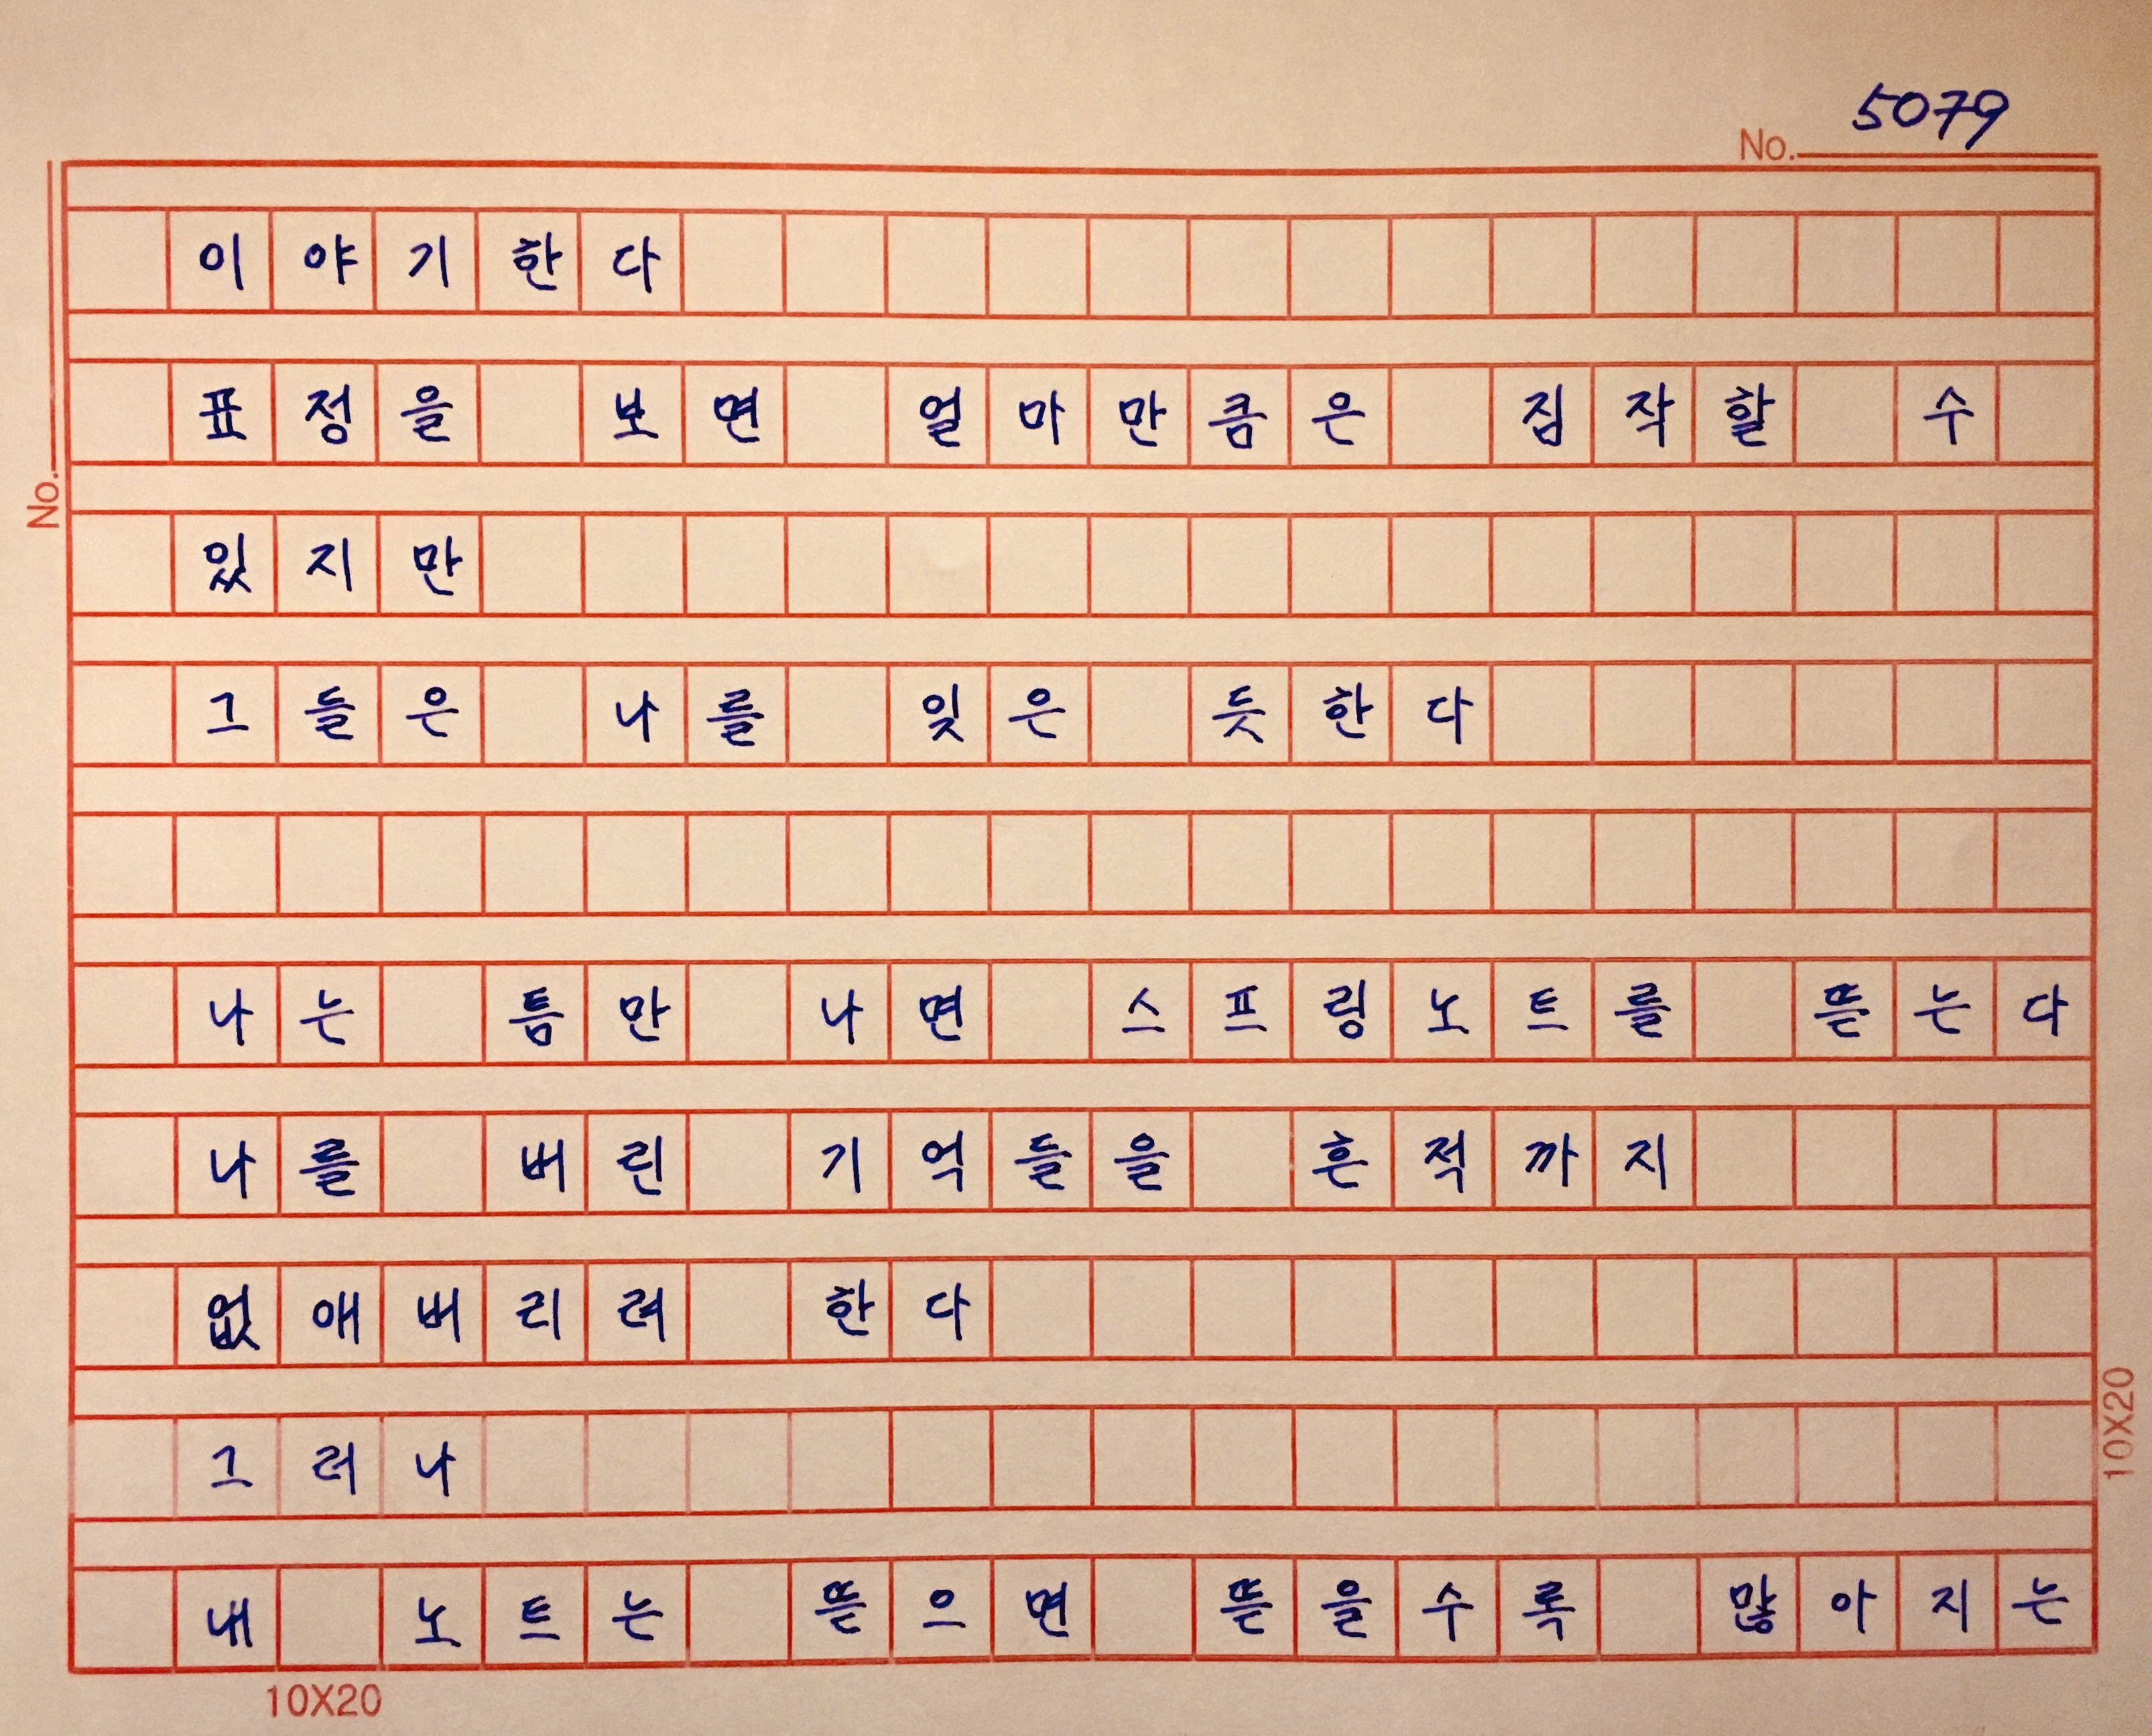 5079
No.
이야기한다
표정을 보면 얼마만큼은 짐작할 수
No.
있지만
그들은 나를 잊은 듯한다
나는 틈만 나면 스프링노트를 뜯는다
나를 버린 기억들을 흔적까지
없애버리려 한다
그러나
내 노트는 뜯으면 뜯을수록 많아지는
10X20
10X20